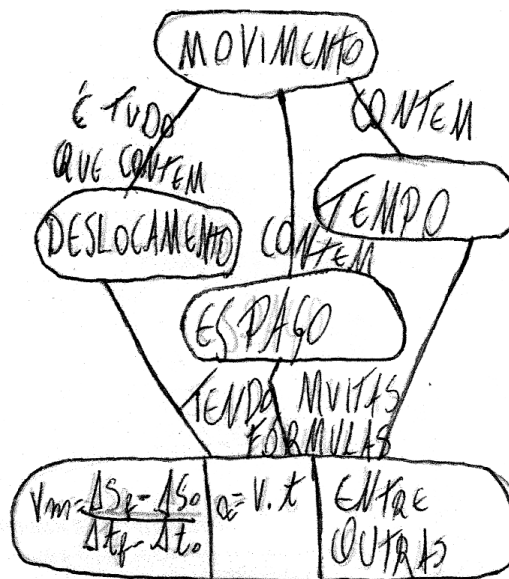 MOVIMENTO
É TUDO
QUE CONTEM
CONTEM
DESLOCAMENTO
CONTEM
TEMPO
ESPAÇO
TENDO MUITAS
FORMULAS
Vm = ΔSf - ΔSo / Δtf - Δto
a = V . t
ENTRE
OUTRAS